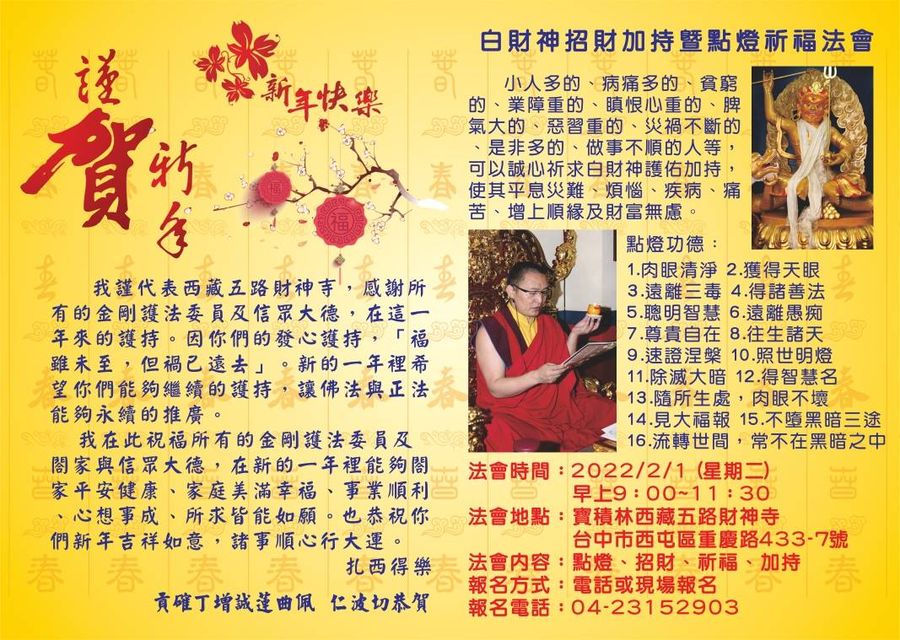 謹
賀
新
年
新年快樂
福
福
我謹代表西藏五路財神寺，感謝所
有的金剛護法委員及信眾大德，在這一
年來的護持。因你們的發心護持，「福
雖未至，但禍已遠去」。新的一年裡希
望你們能夠繼續的護持，讓佛法與正法
能夠永續的推廣。
我在此祝福所有的金剛護法委員及
閤家與信眾大德，在新的一年裡能夠閤
家平安健康、家庭美滿幸福、事業順利
、心想事成、所求皆能如願。也恭祝你
們新年吉祥如意，諸事順心行大運。
扎西得樂
貢確丁增誠蓮曲佩 仁波切恭賀
白財神招財加持暨點燈祈福法會
小人多的、病痛多的、貧窮
的、業障重的、瞋恨心重的、脾
氣大的、惡習重的、災禍不斷的
、是非多的、做事不順的人等，
可以誠心祈求白財神護佑加持，
使其平息災難、煩惱、疾病、痛
苦、增上順緣及財富無慮。
點燈功德：
1.肉眼清淨 2.獲得天眼
3.遠離三毒 4.得諸善法
5.聰明智慧 6.遠離愚痴
7.尊貴自在 8.往生諸天
9.速證涅槃 10.照世明燈
11.除滅大暗 12.得智慧名
13.隨所生處，肉眼不壞
14.見大福報 15.不墮黑暗三途
16.流轉世間，常不在黑暗之中
法會時間：2022/2/1 (星期二)
早上9：00~11：30
法會地點：寶積林西藏五路財神寺
台中市西屯區重慶路433-7號
法會內容：點燈、招財、祈福、加持
報名方式：電話或現場報名
報名電話：04-23152903